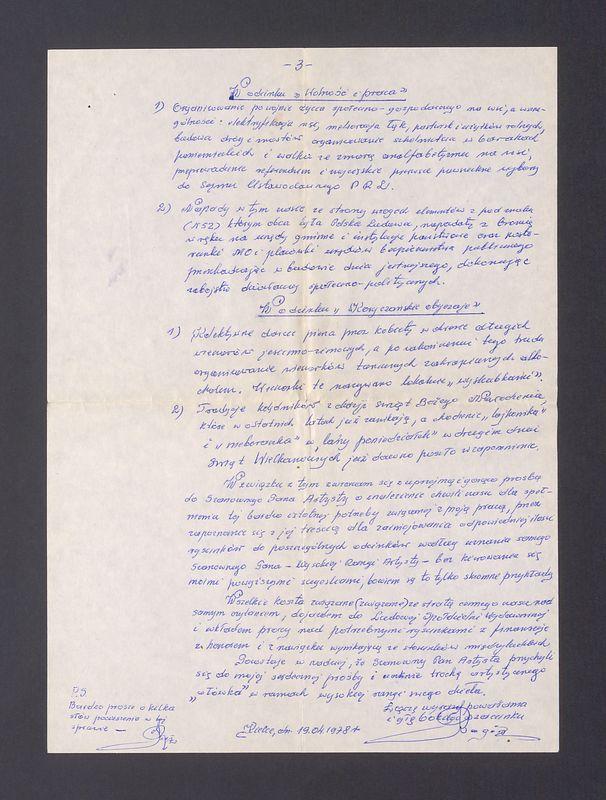 - 3 -
W odcinku „Wolność i praca"
1) Organizowanie powojnie życia społeczno-gospodarczego na wsi, a w szcze-
gólności: elektryfikacja wsi, melioracja łąk, pastwisk i użytków rolnych,
budowa dróg i mostów, organizowanie szkolnictwa w barakach
poniemieckich i walka ze zmorą analfabetyzmu na wsi,
przeprowadzenie referendum i wiejskie pierwsze powszechne wybory
do Sejmu Ustawodawczego P R L.
2) Napady w tym czasie ze strony wrogich elementów z pod znaku
(NSZ) którym obca była Polska Ludowa, napadały z bronią
w ręku na urzędy gminne i instytucje państwowe oraz poste-
runki MO i placówki urzędów bezpieczeństwa publicznego
przeszkadzając w budowie dnia jutrzejszego, dokonując
zabójstw działaczy społeczno-politycznych.
W odcinku „Korczańskie obyczaje"
1) Kolektywne darcie pierza przez kobiety w okresie długich
wieczorów jesienno-zimowych, a po zakończeniu tego trudu
organizowanie wieczorków tanecznych zakrapianych alko-
holem. Wieczorki te nazywano lokalnie „wyskubkami".
2) Tradycje kolędników z okazji świąt Bożego Narodzenia,
które w ostatnich latach już zanikają, a chodzenie „
i „ w „lany poniedziałek" w drugim dniu
świąt Wielkanocnych już dawno poszło w zapomnienie.
W związku z tym zwracam się z uprzejmą i gorącą prośbą
do Szanownego Pana Artysty o znalezienie chwili czasu dla speł-
nienia tej bardzo istotnej potrzeby związanej z moją pracą, przez
zapoznanie się z jej treścią dla zaprojektowania odpowiedniej ilości
rysunków do poszczególnych odcinków według uznania samego
Szanownego Pana - Wysokiej Rangi Artysty - bez kierowania się
moimi powyższymi sugestiami, bowiem są to tylko skromne przykłady.
Wszelkie koszta związane (związane) ze stratą cennego czasu nad
samym czytaniem, dojazdem do Ludowej Spółdzielni Wydawniczej
i wkładem pracy nad potrzebnymi rysunkami z finansuję
z honorem i z nawiązką wynikającą ze stosunków międzyludzkich.
Pozostaję w nadziei, że Szanowny Pan Artysta przychyli
się do mojej serdecznej prośby i uroni trochę artystycznego
„ołówka" w ramach wysokiej rangi mego dzieła.
Łączę wyrazy poważania
i głębokiego szacunku
P.S
Bardzo proszę o kilka
słów powiadomienia w tej
sprawie -
Kielce, dn. 19.04.1978 r